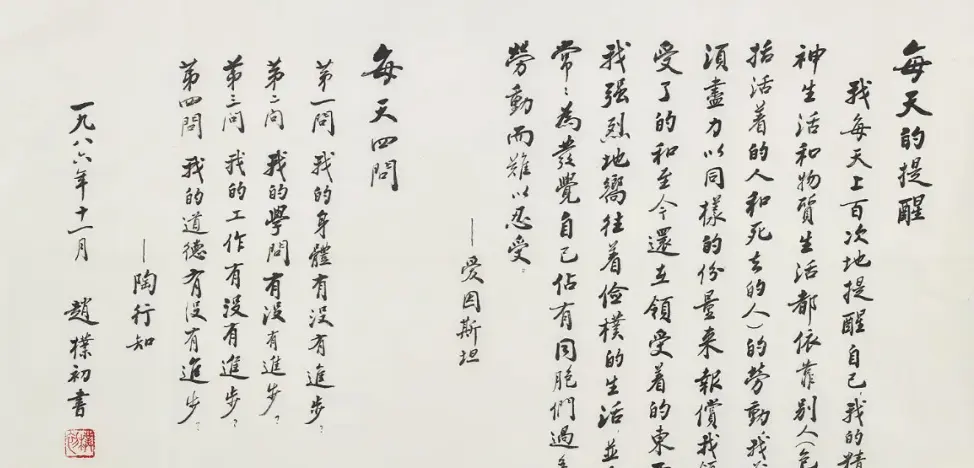 每天的提醒
我每天上百次地提醒自己,我的精
神生活和物質生活都依靠别人(包
括活着的人和死去的人)的勞動,我
須盡力以同樣的份量来報償我
受了的和至今還在領受着的東
我强烈地嚮往着儉樸的生活,並
常:為發覺自己佔有同胞們過
勞動而難以忍受。
——愛因斯坦
每天四問
第一問 我的身體有没有進步?
第二问 我的學問有没有進步?
第三问 我的工作有没有進步?
第四問 我的道德有没有進步?
——陶行知
一九八六年十一月 趙樸初書